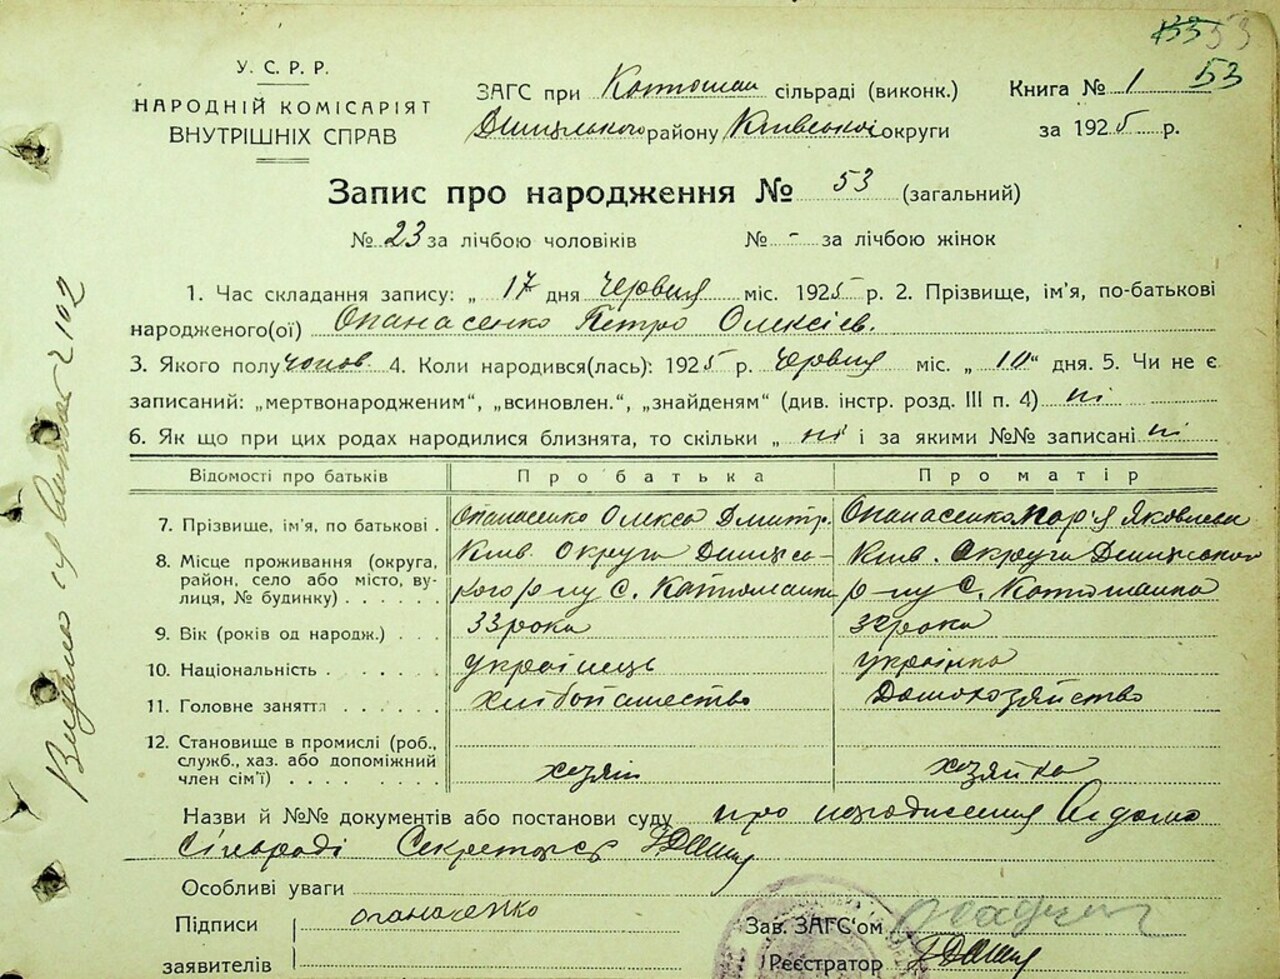 53
У. С. Р. Р.
НАРОДНІЙ КОМІСАРІЯТ
ВНУТРІШНІХ СПРАВ
ЗАГС при сільраді (виконк.)
району Київської округи
Книга № 1 53
за 1925 р.
Запис про народження № 53 (загальний)
№ 23 за лічбою чоловіків № - за лічбою жінок
1. Час складання запису: „ 17 дня червня міс. 1925 р. 2. Прізвище, ім'я, по-батькові
народженого(ої) Опанасенко Петро Олексієв.
3. Якого полу чолов. 4. Коли народився(лась): 1925 р. червня міс. „ 10“ дня. 5. Чи не є
записаний: „мертвонародженим“, „всиновлен.“, „знайденям“ (див. інстр. розд. III п. 4) ні
6. Як що при цих родах народилися близнята, то скільки „ ні і за якими №№ записані ні
Відомості про батьків Про батька Про матір
7. Прізвище, ім'я, по батькові . Опанасенко Олекса Дмитр. Опанасенко Мар'я Яковлевн
8. Місце проживання (округа, Київ. Округа Київ. Округи
район, село або місто, ву-
лиця, № будинку) . . . . . . р-ну С. р-ну С.
9. Вік (років од народж.) . . . 33 роки 32 роки
10. Національність . . . . . . українець українка
11. Головне заняття . . . . . хлібопашество Домохозяйство
12. Становище в промислі (роб.,
служб., хаз. або допоміжний
член сім'ї) . . . . . . . . хозяїн хозяйка
Назви й №№ документів або постанови суду про народження Відомо
Сільраді Секретарь
Особливі уваги
Підписи опанасенко Зав. ЗАГС'ом
заявителів Реєстратор
Видано 2102